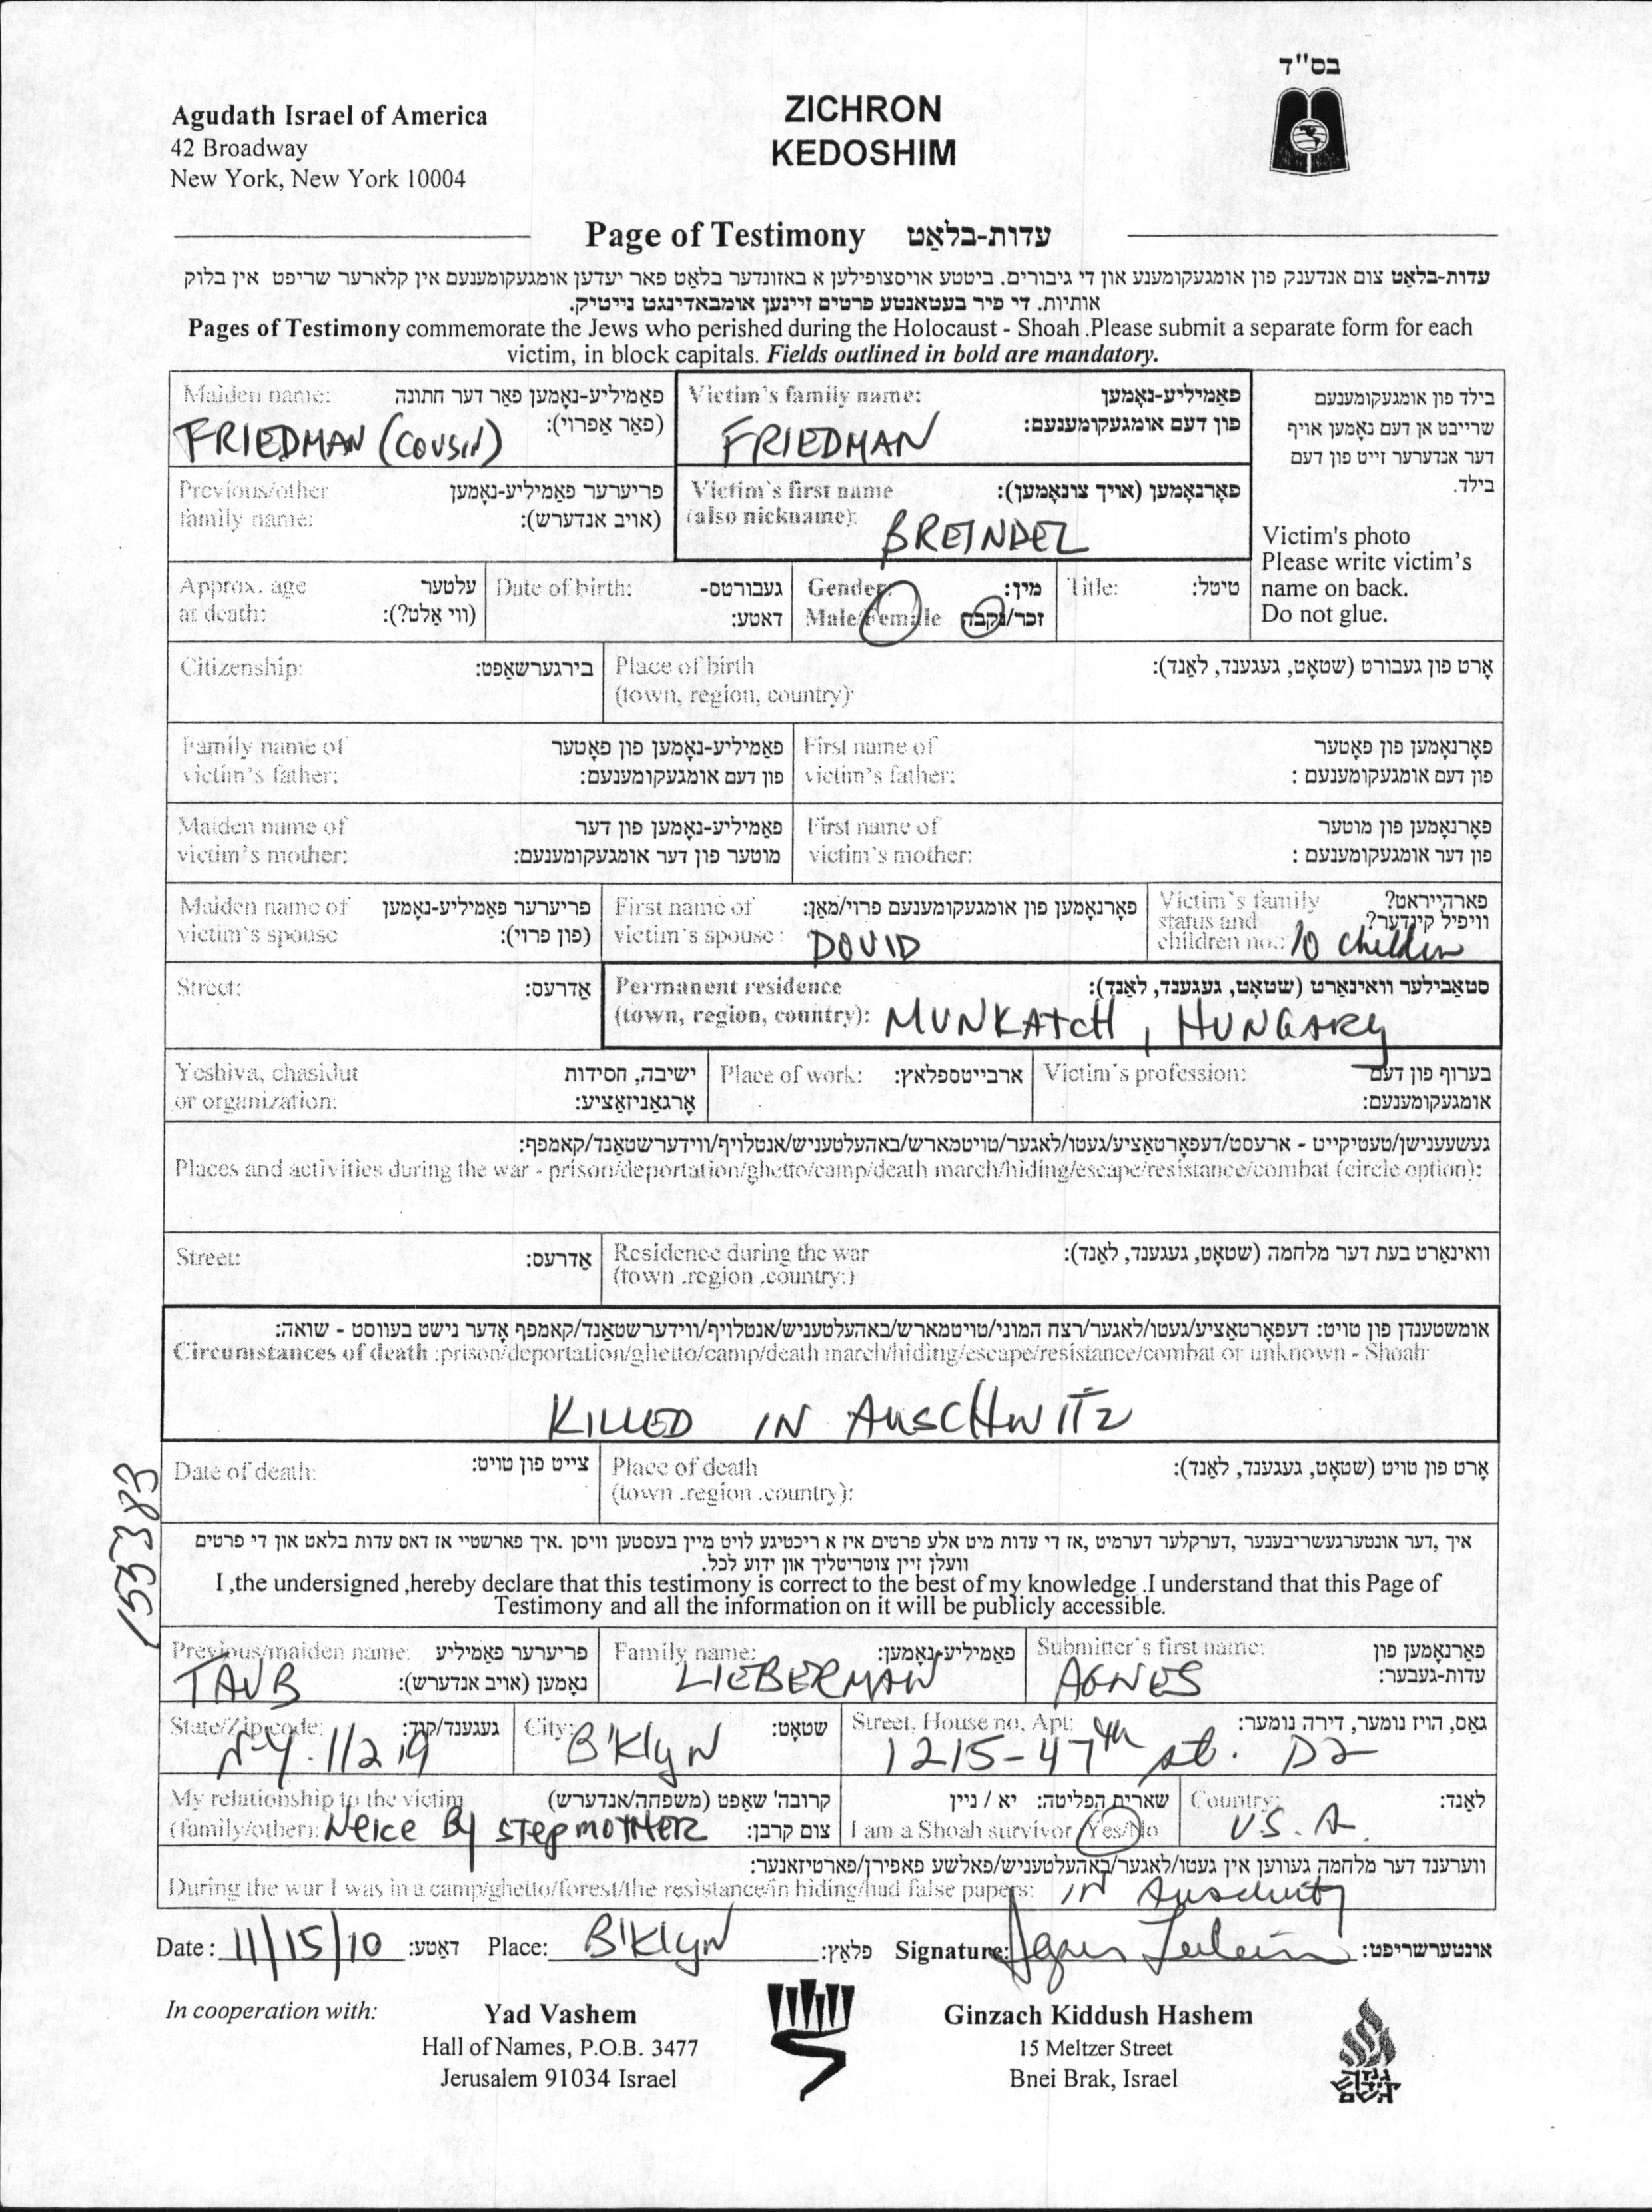 בס"ד
Agudath Israel of America
42 Broadway
New York, New York 10004
ZICHRON
KEDOSHIM
Page of Testimony עדות-בלאַט
עדות-בלאַט צום אנדענק פון אומגעקומענע און די גיבורים. ביטטע אויסצופילען א באזונדער בלאַט פאר יעדען אומגעקומענעם אין קלארער שריפט אין בלוק
אותיות. די פיר בעטאנטע פרטים זיינען אומבאדינגט נייטיק.
Pages of Testimony commemorate the Jews who perished during the Holocaust - Shoah .Please submit a separate form for each
victim, in block capitals. Fields outlined in bold are mandatory.
Maiden name: פאַמיליע-נאָמען פאר דער חתונה
(פאַר אַפרוי):
FRIEDMAN (COUSIN)
Victim's family name: פאַמיליע-נאָמען
פון דעם אומגעקומענעם:
FRIEDMAN
בילד פון אומגעקומענעם
שרייבט אן דעם נאָמען אויף
דער אנדערער זייט פון דעם
בילד.
Victim's photo
Please write victim's
name on back.
Do not glue.
Previous/other פריערער פאַמיליע-נאָמען
family name: (אויב אנדערש):
Victim's first name פאָרנאָמען (אויך צונאָמען):
(also nickname):
BREINDEL
Approx. age עלטער
at death: (ווי אַלט?):
Date of birth: געבורטס-
דאַטע:
Gender: מין:
Male/Female זכר/נקבה
Title: טיטל:
Citizenship: בירגערשאַפט:
Place of birth אָרט פון געבורט (שטאָט, געגענד, לאַנד):
(town, region, country):
Family name of פאַמיליע-נאָמען פון פאָטער
victim's father: פון דעם אומגעקומענעם:
First name of פאָרנאָמען פון פאָטער
victim's father: פון דעם אומגעקומענעם :
Maiden name of פאַמיליע-נאָמען פון דער
victim's mother: מוטער פון דער אומגעקומענעם:
First name of פאָרנאָמען פון מוטער
victim's mother: פון דער אומגעקומענעם :
Maiden name of פריערער פאַמיליע-נאָמען
victim's spouse (פון פרוי):
First name of פאָרנאָמען פון אומגעקומענעם פרוי/מאַן:
victim's spouse : DOVID
Victim's family פארהייראט?
status and וויפיל קינדער?
children no.: 10 children
Street: אַדרעס:
Permanent residence סטאַבילער וואינאַרט (שטאָט, געגענד, לאַנד):
(town, region, country): MUNKATCH, HUNGARY
Yeshiva, chasidut ישיבה, חסידות
or organization: אָרגאַניזאַציע:
Place of work: ארבייטספלאץ:
Victim's profession: בערוף פון דעם
אומגעקומענעם:
געשעענישן/טעטיקייט - ארעסט/דעפאָרטאַציע/געטו/לאגער/טויטמארש/באהעלטעניש/אנטלויף/ווידערשטאַנד/קאמפף:
Places and activities during the war - prison/deportation/ghetto/camp/death march/hiding/escape/resistance/combat (circle option):
Street: אַדרעס:
Residence during the war וואינאַרט בעת דער מלחמה (שטאָט, געגענד, לאַנד):
(town .region .country:)
אומשטענדן פון טויט: דעפאָרטאַציע/געטו/לאגער/רצח המוני/טויטמארש/באהעלטעניש/אנטלויף/ווידערשטאַנד/קאמפף אָדער נישט בעוואוסט - שואה:
Circumstances of death :prison/deportation/ghetto/camp/death march/hiding/escape/resistance/combat or unknown - Shoah:
KILLED IN AUSCHWITZ
Date of death: צייט פון טויט:
Place of death אָרט פון טויט (שטאָט, געגענד, לאַנד):
(town .region .country):
155383
איך ,דער אונטערגעשריבענער ,דערקלער דערמיט ,אז די עדות מיט אלע פרטים איז א ריכטיגע לויט מיין בעסטען וויסן .איך פארשטיי אז דאס עדות בלאט און די פרטים
וועלן זיין צוטריטליך און ידוע לכל.
I ,the undersigned ,hereby declare that this testimony is correct to the best of my knowledge .I understand that this Page of
Testimony and all the information on it will be publicly accessible.
Previous/maiden name: פריערער פאַמיליע
נאָמען (אויב אנדערש):
TAUB
Family name: פאַמיליע-נאָמען:
LIEBERMAN
Submitter's first name: פאָרנאָמען פון
עדות-געבער:
AGNES
State/Zip code: געגענד/קוד:
N.Y. 11219
City: שטאָט:
B'Klyn
Street, House no, Apt: גאַס, הויז נומער, דירה נומער:
1215-47th st. D2
My relationship to the victim קרובה' שאַפט (משפחה/אנדערש)
(family/other): Neice By STEPMOTHER צום קרבן:
שארית הפליטה: יא / ניין
I am a Shoah survivor Yes/No
Country: לאַנד:
U.S.A.
ווערענד דער מלחמה געווען אין געטו/לאגער/באַהעלטעניש/פאלשע פאפירן/פארטיזאנער:
During the war I was in a camp/ghetto/forest/the resistance/in hiding/had false papers: IN Auschwitz
Date : 11/15/10 דאַטע: Place: B'Klyn פלאַץ: Signature: Agnes אונטערשריפט:
In cooperation with:
Yad Vashem
Hall of Names, P.O.B. 3477
Jerusalem 91034 Israel
Ginzach Kiddush Hashem
15 Meltzer Street
Bnei Brak, Israel
גנזך
קידוש
השם